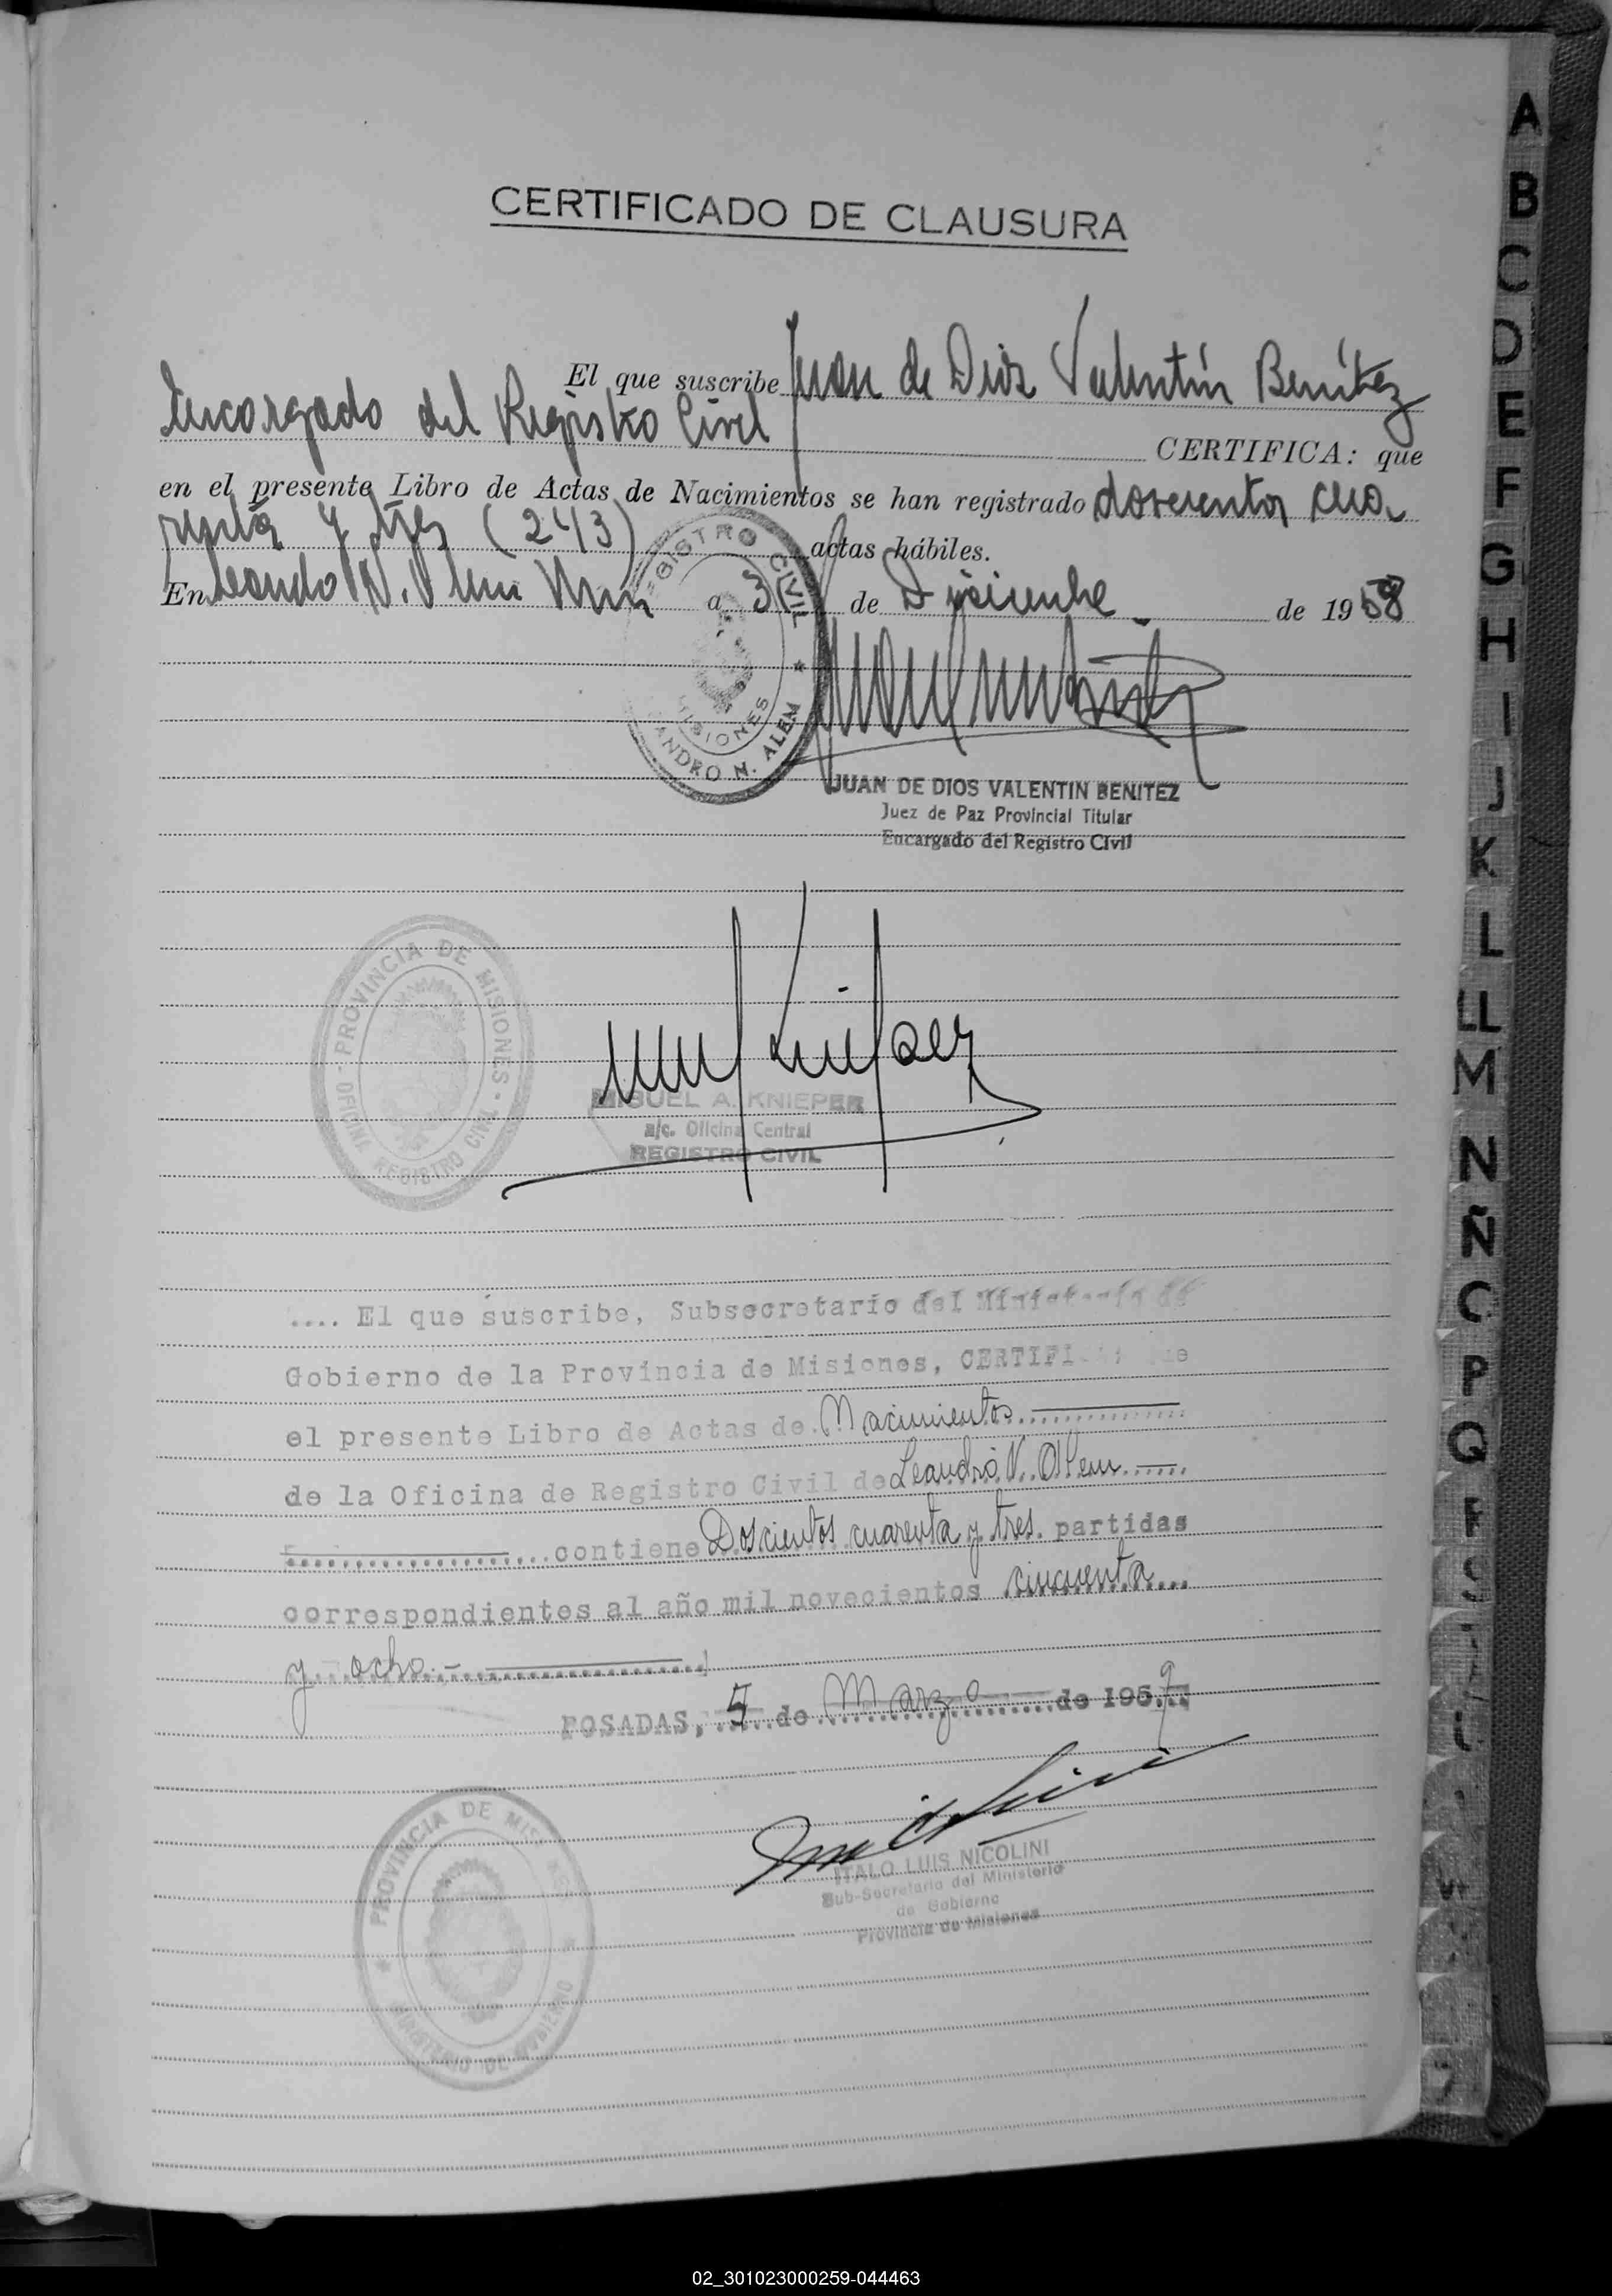 CERTIFICADO DE CLAUSURA
El que suscribe Juan de Dios Valentín Benítez
Encargado del Registro Civil CERTIFICA: que
en el presente Libro de Actas de Nacimientos se han registrado doscientos cua-
renta y tres (243) actas hábiles.
En Leandro N. Alem a 31 de Diciembre de 1958
REGISTRO CIVIL
MISIONES
LEANDRO N. ALEM
JUAN DE DIOS VALENTIN BENITEZ
Juez de Paz Provincial Titular
Encargado del Registro Civil
PROVINCIA DE MISIONES - OFICINA REGISTRO CIVIL
MIGUEL A. KNIEPER
a/c. Oficina Central
REGISTRO CIVIL
.... El que suscribe, Subsecretario del Ministerio de
Gobierno de la Provincia de Misiones, CERTIFICA: que
el presente Libro de Actas de Nacimientos
de la Oficina de Registro Civil de Leandro N. Alem
contiene Doscientos cuarenta y tres. partidas
correspondientes al año mil novecientos cincuenta
y ocho.-
POSADAS, 5 de Marzo de 1959
PROVINCIA DE MISIONES
MINISTERIO DE GOBIERNO
ITALO LUIS NICOLINI
Sub-Secretario del Ministerio
de Gobierno
Provincia de Misiones
A
B
C
D
E
F
G
H
I
J
K
L
LL
M
N
Ñ
P
Q
S
02_301023000259-044463